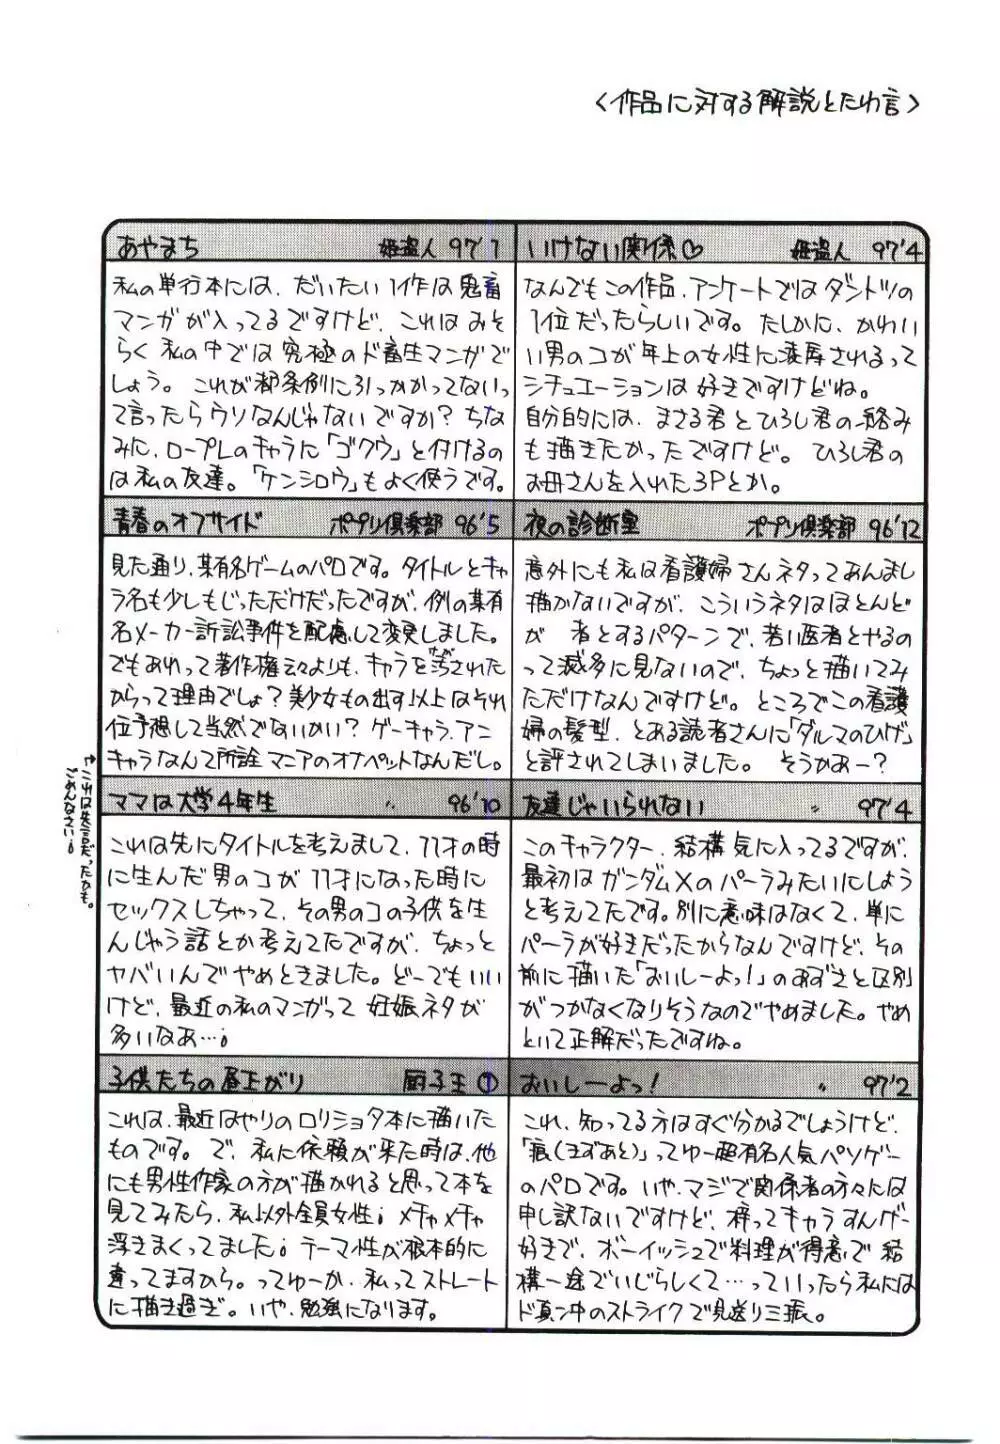 〈作品に対する解説とたわ言〉
あやまち 姫盗人 97'1
私の単行本には、だいたい1作は鬼畜
マンガが入ってるですけど、これはおそ
らく私の中では究極のド畜生マンガで
しょう。これが都条例に引っかかってないっ
て言ったらウソなんじゃないですか?ちな
みに、ロープレのキャラに「ゴクウ」と付けるの
は私の友達。「ケンシロウ」もよく使うです。
いけない関係♡ 姫盗人 97'4
なんでもこの作品、アンケートではダントツの
1位だったらしいです。たしかに、かわい
い男のコが年上の女性に凌辱されるって
シチュエーションは好きですけどね。
自分的には、まさる君とひろし君の絡み
も描きたかったですけど。ひろし君の
お母さんを入れた3Pとか。
青春のオフサイド ポプリ倶楽部 96'5
見た通り、某有名ゲームのパロです。タイトルとキャ
ラ名も少しもじっただけだったですが、例の某有
名メーカー訴訟事件を配慮して変更しました。
でもあれって著作権云々よりも、キャラを汚された
からって理由でしょ?美少女もの出す以上はそれ
位予想して当然でないかい?ゲーキャラ、アニ
キャラなんて所詮マニアのオナペットなんだし。
↑これは失言だったかも。
ごめんなさい。
夜の診断室 ポプリ倶楽部 96'12
意外にも私は看護婦さんネタってあんまし
描かないですが、こういうネタはほとんど
が 者とするパターンで、若い医者とやるの
って滅多に見ないので、ちょっと描いてみ
ただけなんですけど。ところでこの看護
婦の髪型、とある読者さんに「ダルマのひげ」
と評されてしまいました。そうかあー?
ママは大学4年生 〃 96'10
これは先にタイトルを考えまして、11才の時
に生んだ男のコが11才になった時に
セックスしちゃって、その男のコの子供を生
んじゃう話とか考えてたですが、ちょっと
ヤバいんでやめときました。どーでもいい
けど、最近の私のマンガって妊娠ネタが
多いなあ…。
友達じゃいられない 〃 97'4
このキャラクター、結構気に入ってるですが、
最初はガンダムXのパーラみたいにしよう
と考えてたです。別に意味はなくて、単に
パーラが好きだったからなんですけど、その
前に描いた「おいしーよっ!」のあずさと区別
がつかなくなりそうなのでやめました。やめ
といて正解だったですね。
子供たちの昼下がり 厨子王①
これは、最近はやりのロリショタ本に描いた
ものです。で、私に依頼が来た時は、他
にも男性作家の方が描かれると思って本を
見てみたら、私以外全員女性。メチャメチャ
浮きまくってました。テーマ性が根本的に
違ってますから。ってゆーか、私ってストレート
に描き過ぎ。いや、勉強になります。
おいしーよっ! 〃 97'2
これ、知ってる方はすぐ分かるでしょうけど、
「痕(きずあと)」ってゆー超有名人気パソゲー
のパロです。いや、マジで関係者の方々には
申し訳ないですけど、梓ってキャラすんげー
好きで、ボーイッシュで料理が得意で結
構一途でいじらしくて…っていったら私には
ド真ン中のストライクで見送り三振。